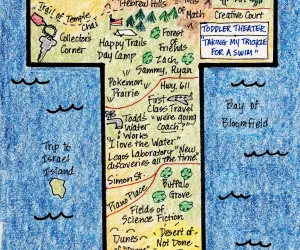 Hebrew Hills
Mts
of
Math
Creative Court
Trail of Temple
Chai
Collectors
Corner
Happy Trails
Day Camp
Forest
of
Friends
Zach,
Sammy, Ryan
TODDLER THEATER
"TAKING MY TRICYCLE
FOR A SWIM"
Pokemon
Prairie
Hwy. 611
Fast
Class
Todds
Water
Works
"we're going
Coach?"
"I love the Water"
Legos Laboratory "New
discoveries all the time."
Bay of
Bloomfield
Trip to
Israel
Island
Simon St.
Piano Place
Buffalo
Grove
Fields of
Science Fiction
Dunes
Desert of
Not Done